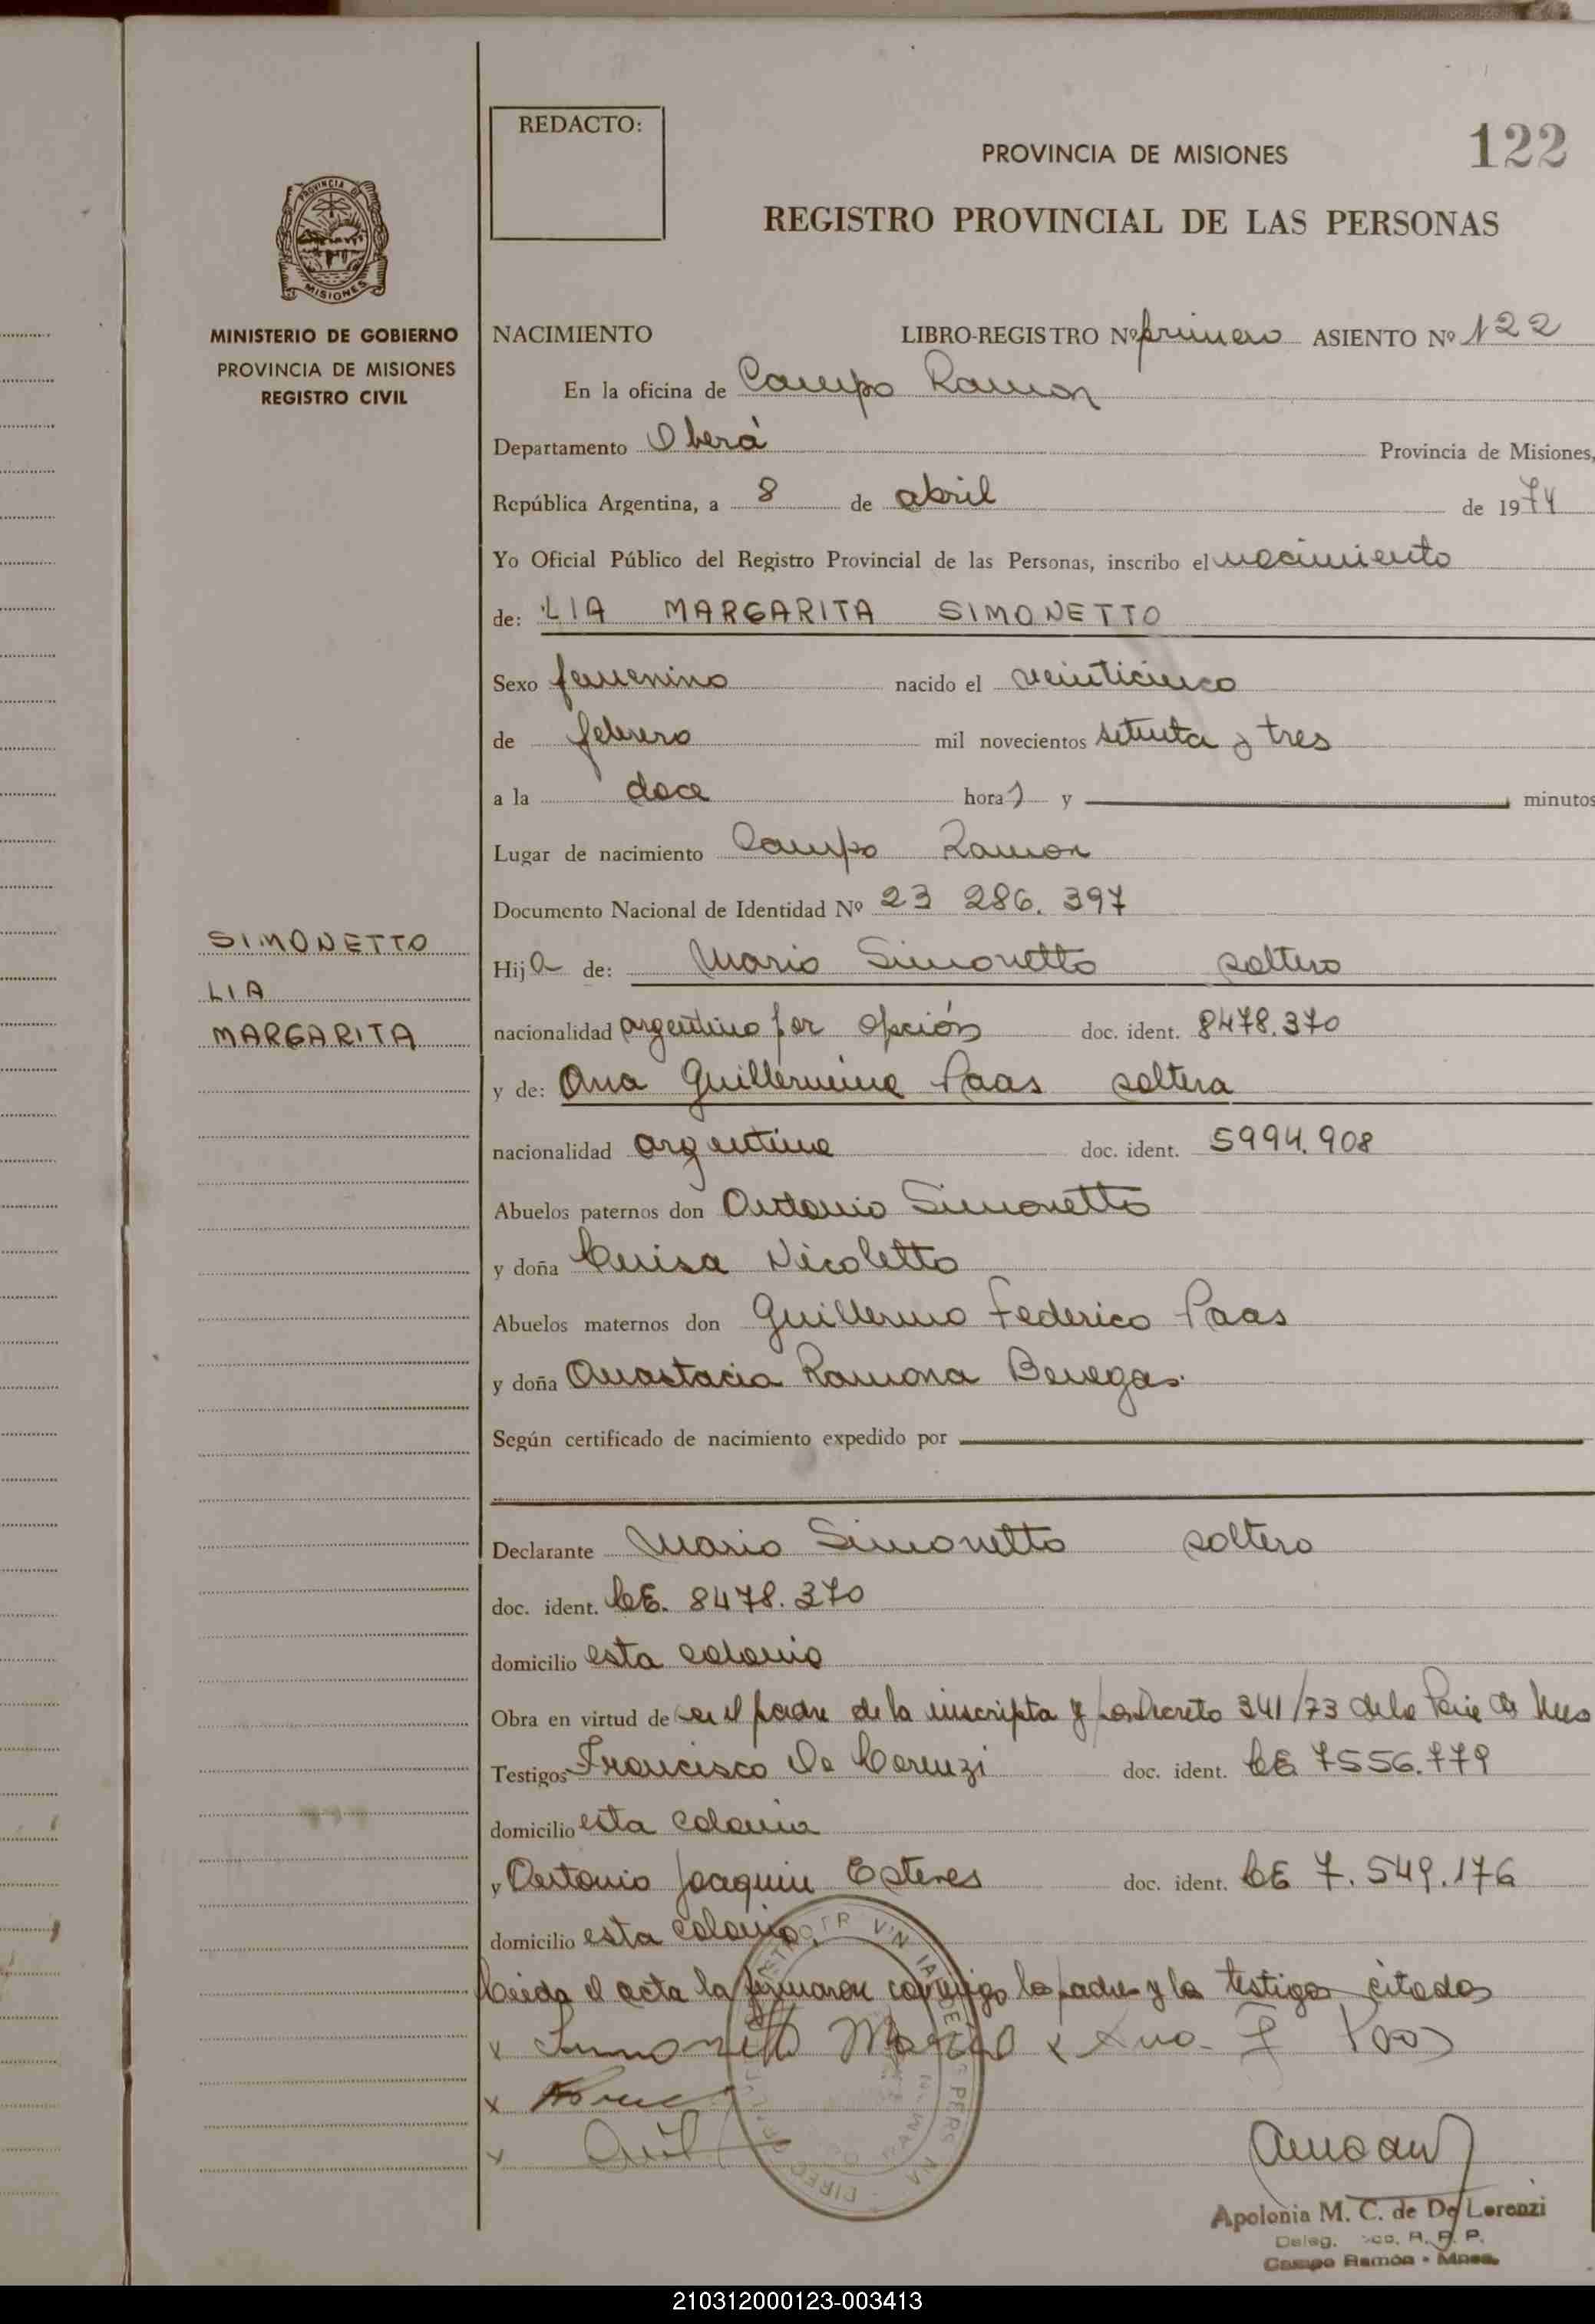 REDACTO:
PROVINCIA DE MISIONES
122
REGISTRO PROVINCIAL DE LAS PERSONAS
PROVINCIA DE
MISIONES
MINISTERIO DE GOBIERNO
PROVINCIA DE MISIONES
REGISTRO CIVIL
NACIMIENTO LIBRO-REGISTRO Nº primero ASIENTO Nº 122
En la oficina de Campo Ramon
Departamento Oberá Provincia de Misiones,
República Argentina, a 8 de abril de 1974
Yo Oficial Público del Registro Provincial de las Personas, inscribo el nacimiento
de: LIA MARGARITA SIMONETTO
Sexo femenino nacido el veinticinco
de febrero mil novecientos setenta y tres
a la doce horas y minutos
Lugar de nacimiento Campo Ramon
Documento Nacional de Identidad Nº 23 286. 397
SIMONETTO
LIA
MARGARITA
Hija de: Mario Simonetto soltero
nacionalidad argentino por opción doc. ident. 8478.370
y de: Ana Guillermina Paas soltera
nacionalidad argentina doc. ident. 5994.908
Abuelos paternos don Antonio Simonetto
y doña Luisa Nicoletto
Abuelos maternos don Guillermo Federico Paas
y doña Anastacia Ramona Benegas.
Según certificado de nacimiento expedido por
Declarante Mario Simonetto soltero
doc. ident. LE. 8478.370
domicilio esta colonia
Obra en virtud de ser el padre de la inscripta y por Decreto 341/73 de la
Testigos Francisco De Lorenzi doc. ident. LE 7556.779
domicilio esta colonia
y Antonio Joaquin Esteves doc. ident. LE 7.549.176
domicilio esta colonia.
Leida el acta la firmaron conmigo los padres y los testigos citados
x Simonetto Mario x Ana G Paas
x
x
Apolonia M. C. de De Lorenzi
Deleg. R. P. P.
Campo Ramón - Mnes.
210312000123-003413